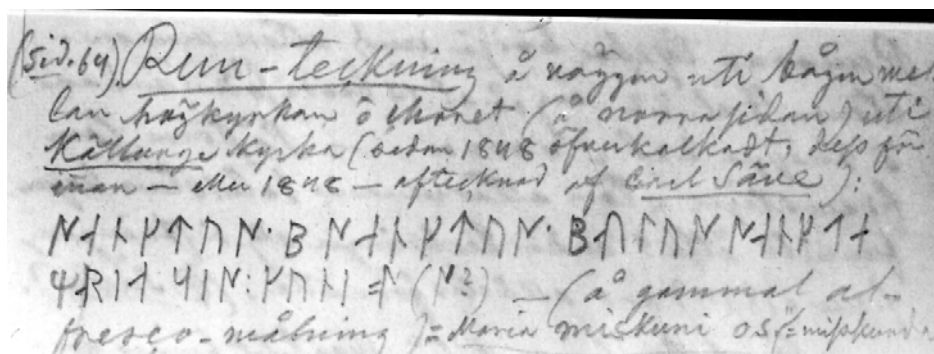 (Sid. 64) Run-teckning å väggen uti bågen mel-
lan högkyrkan o choret (å norra sidan) uti
Källunge kyrka (sedan 1848 öfverkalkadt, dess för
innan — 1848 — aftecknad af Carl Säve):
ᛋᛆᚿᚴᛏᚢᛋ · ᛒ ᛋᛆᚿᚴᛏᚢᛋ · ᛒᛆᚢᛚᚢᛋ ᛋᛆᚿᚴᛏᛆ
ᛘᚱᛁᛆ ᛘᛁᛋ:ᚴᚢᚿᛁ (ᛋ?) — (å gammal al-
fresco-målning) = Maria miskuni os (= misskunda